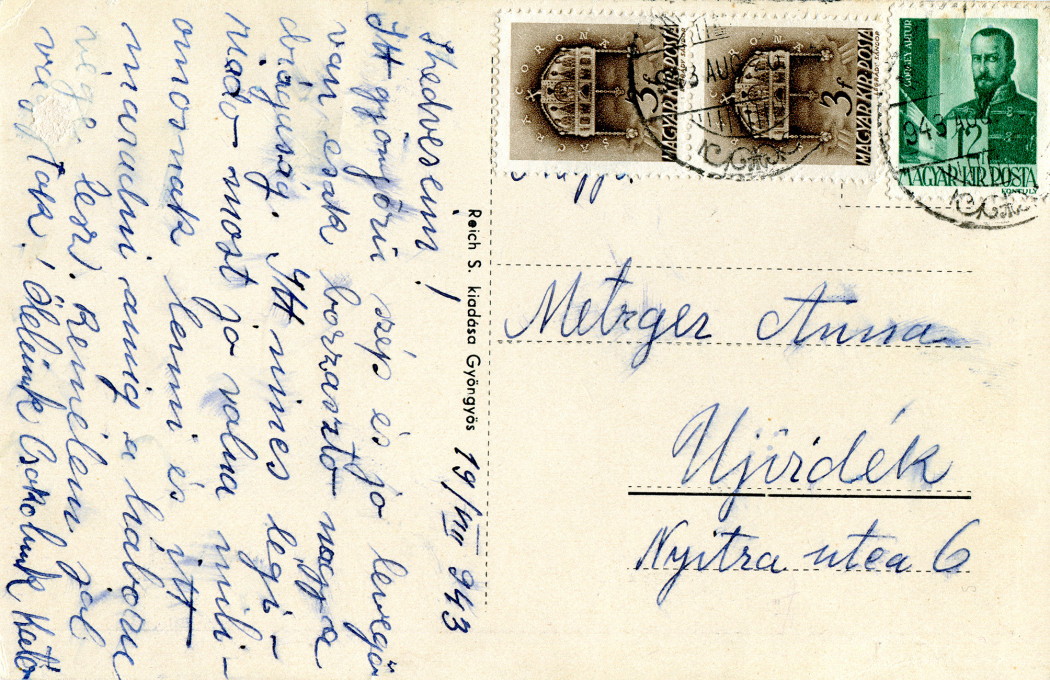 Kedveseim!
Itt gyönyörü szép és jo levegő
van csak borzasztó nagy a
drágaság. Itt nincs légi-
riado-most jo volna mili-
omosnak lenni és itt
maradni amig a haboru
végé lesz. Remélem jól
vagytok! Ölelünk Csokolunk Kató
19/VIII 943
Reich S. kiadása Gyöngyös
CORONA
MAGYAR KIR. POSTA
3f
CORONA
MAGYAR KIR. POSTA
3f
GÖRGEY ARTUR
12
MAGYAR KIR. POSTA
943 AUG
Metzger Anna
Ujvidék
Nyitra utca 6